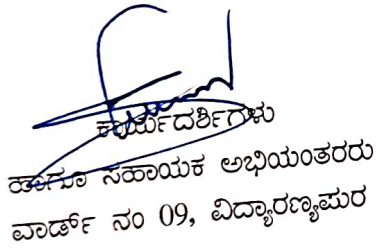 ಕಾರ್ಯದರ್ಶಿಗಳು
ಹಾಗೂ ಸಹಾಯಕ ಅಭಿಯಂತರರು
ವಾರ್ಡ್ ನಂ 09, ವಿದ್ಯಾರಣ್ಯಪುರ